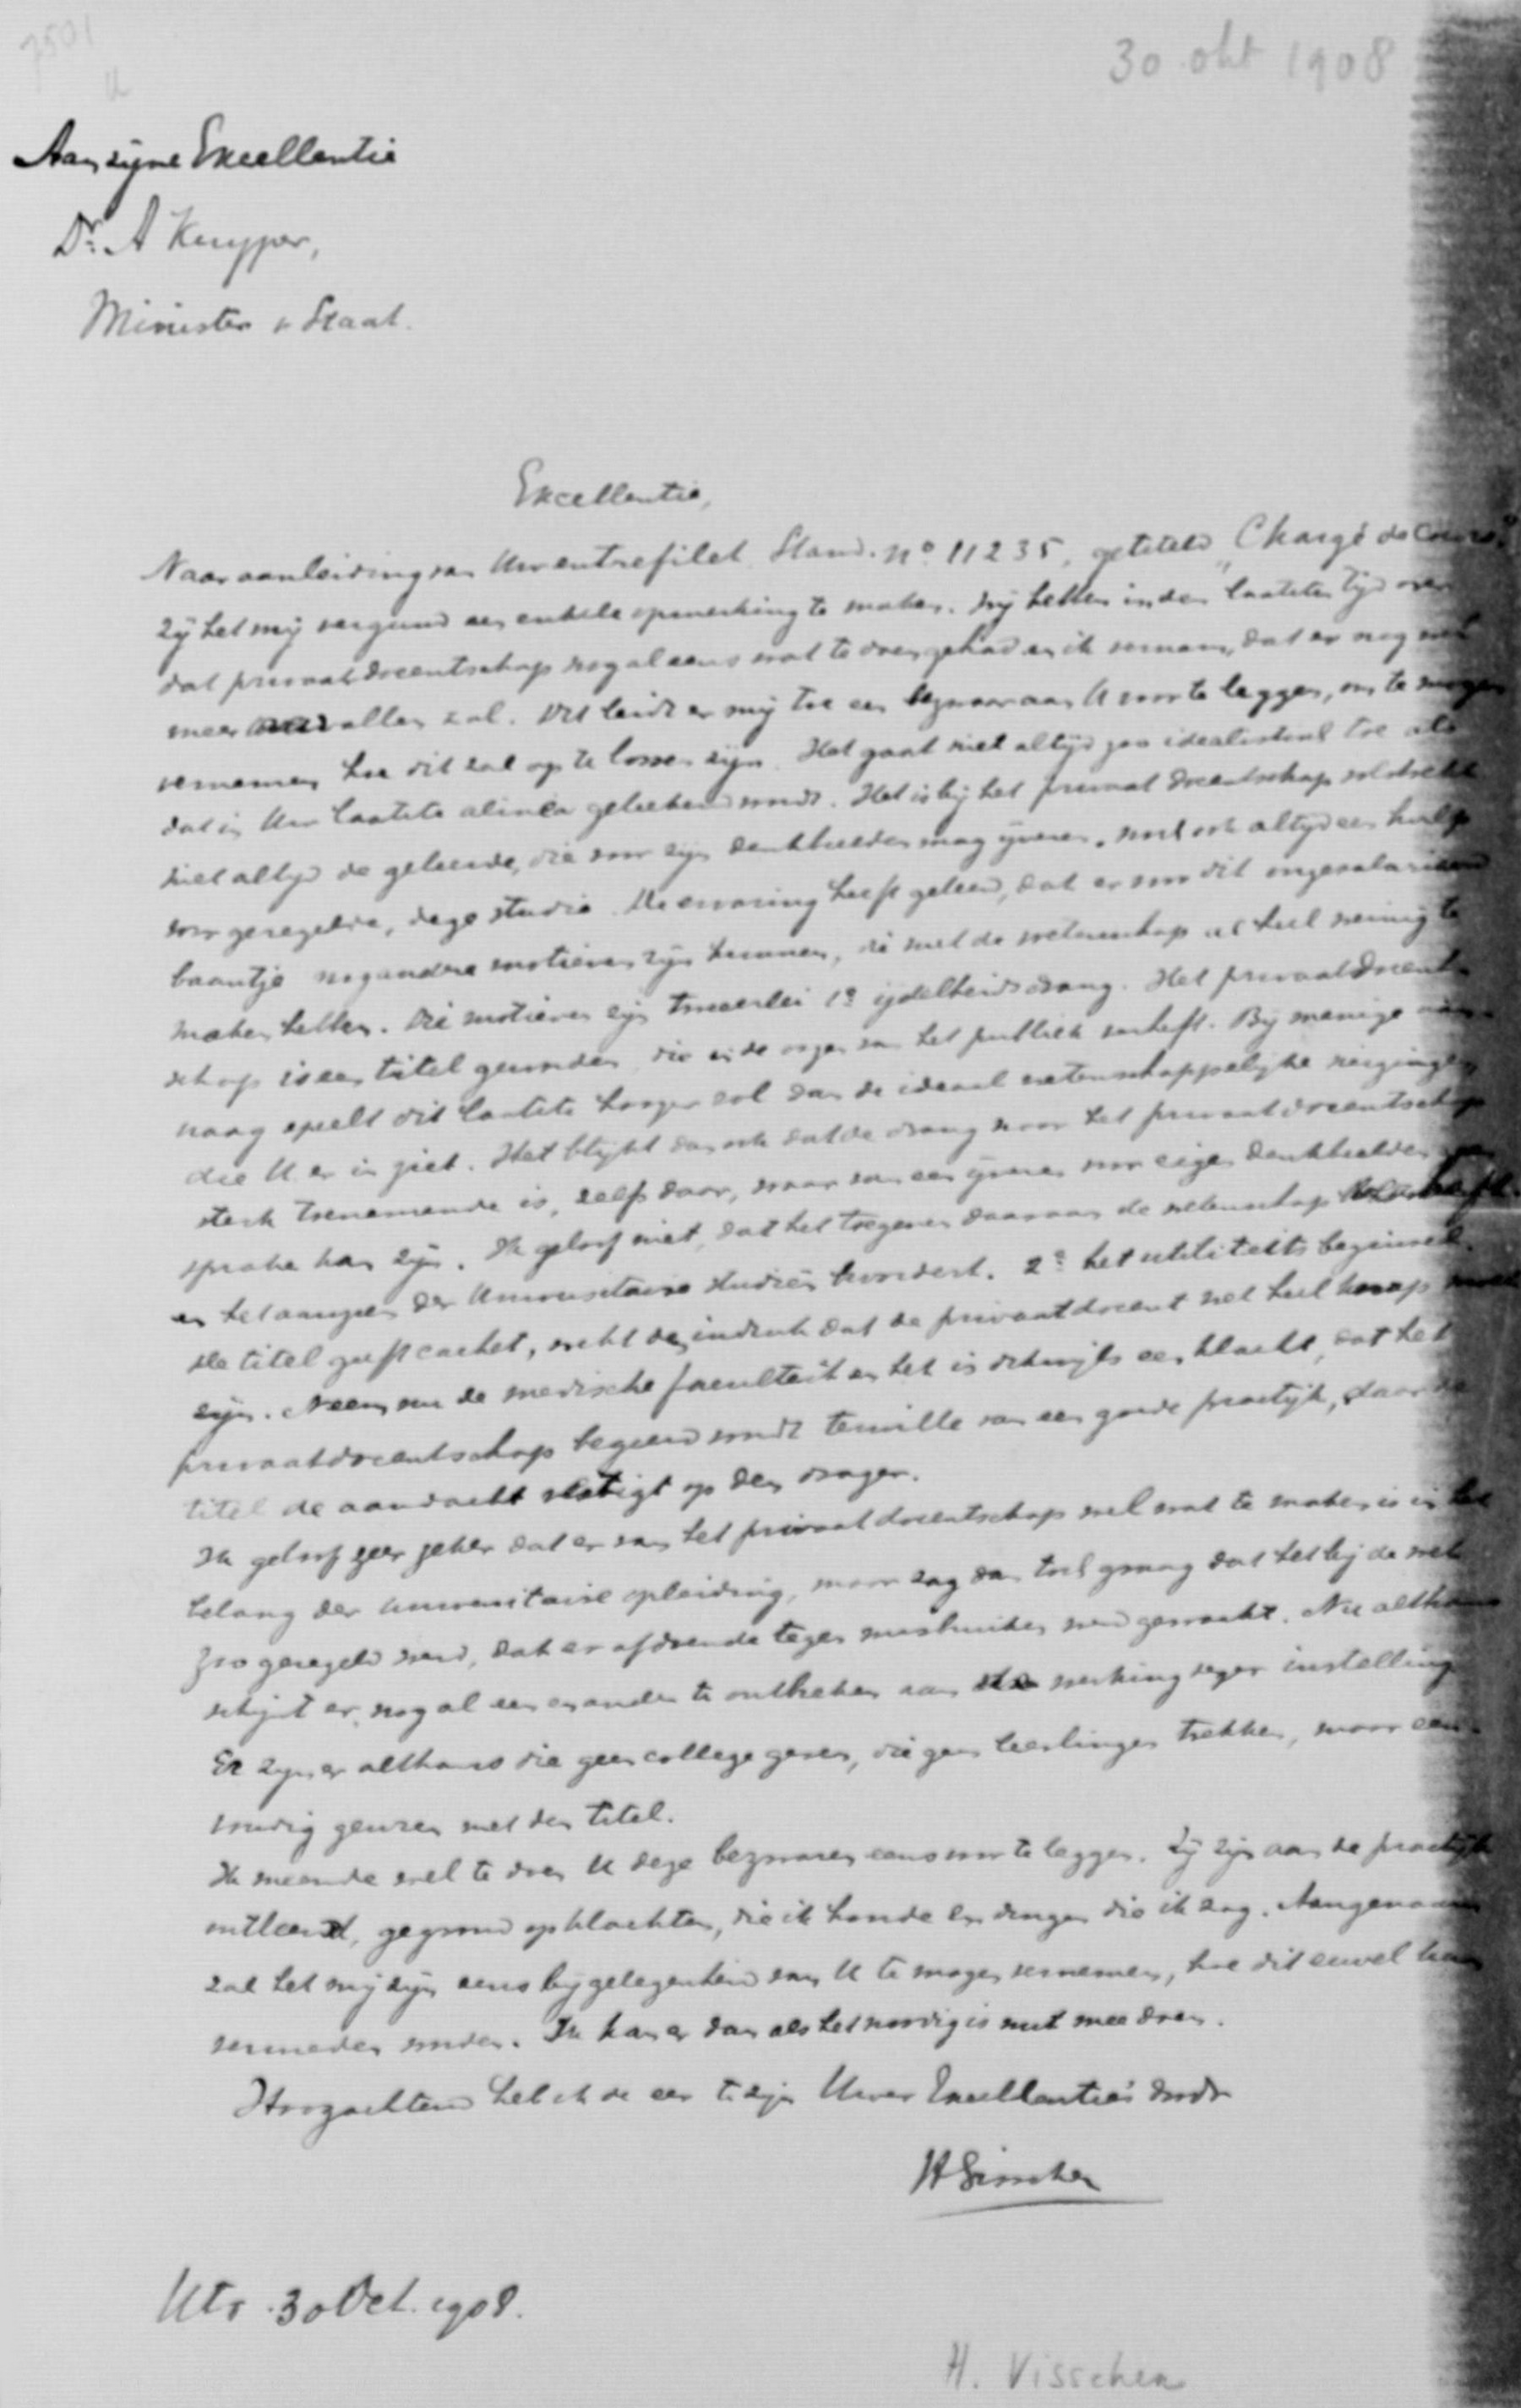 7501
U
30 okt 1908
Aan zijne Excellentie
Dr. A Kuyper,
Minister v Staat.
Excellentie,
Naar aanleiding van Uw entrefilet Stand. no. 11235, getiteld „Chargé de Cours"
zij het mij vergund een enkele opmerking te maken. Wij hebben in den laatsten tijd over
dat privaatdocentschap nog al eens wat te doen gehad en ik vernam, dat er nog wat
meer vallen zal. Dit leidt er mij toe een bezwaar aan U voor te leggen, om te mogen
vernemen hoe dit zal op te lossen zijn. Het gaat niet altijd zoo idealistisch toe als
dat in Uw laatste alinea geteekend wordt. Het is bij het privaat docentschap volstrekt
niet altijd de geleerde, die voor zijn denkbeelden mag ijveren, noch ook altijd een hulp
voor geregelde, dege studie. De ervaring heeft geleerd, dat er voor dit ongesalarieerd
baantje nog andere motieven zijn kunnen, die met de wetenschap al heel weinig te
maken hebben. Die motieven zijn tweeërlei 1o ijdelheidsdrang. Het privaat docent-
schap is een titel geworden, die in de oogen van het publiek verheft. Bij menige aan-
vraag speelt dit laatste hooger rol dan de ideaal wetenschappelijke neigingen,
die U er in ziet. Het blijkt dan ook dat de drang naar het privaatdocentschap
sterk toenemende is, zelfs daar, waar van een ijveren voor eigen denkbeelden geen
sprake kan zijn. Ik geloof niet, dat het toegeven daaraan de wetenschap
en het aanzien der Universitaire studiën bevordert. 2o het utiliteits beginsel.
De titel geeft cachet, wekt den indruk dat de privaatdocent wel heel knap moet
zijn. Neem nu de medische faculteit en het is dikwijls een klacht, dat het
privaatdocentschap begeerd wordt terwille van een goede practijk, daar de
titel de aandacht vestigt op den drager.
Ik geloof zeer zeker dat er van het privaat docentschap wel wat te maken is in het
belang der universitaire opleiding, maar zag dan toch graag dat het bij de wet
zoo geregeld werd, dat er afdoende tegen misbruiken werd gewaakt. Nu althans
schijnt er nog al een en ander te ontbreken aan de werking dezer instelling
Er zijn er althans die geen college geven, die geen leerlingen trekken, maar een-
voudig geuren met den titel.
Ik meende wel te doen U deze bezwaren eens voor te leggen. Zij zijn aan de practijk
ontleend, gegrond op klachten, die ik hoorde en dingen die ik zag. Aangenaam
zal het mij zijn eens bij gelegenheid van U te mogen vernemen, hoe dit euvel kan
vermeden worden. Ik kan er dan als het noodig is nut mee doen.
Hoogachtend heb ik de eer te zijn Uwer Excellentie's dwdr
H Visscher
Utr. 30 Oct. 1908.
H. Visscher